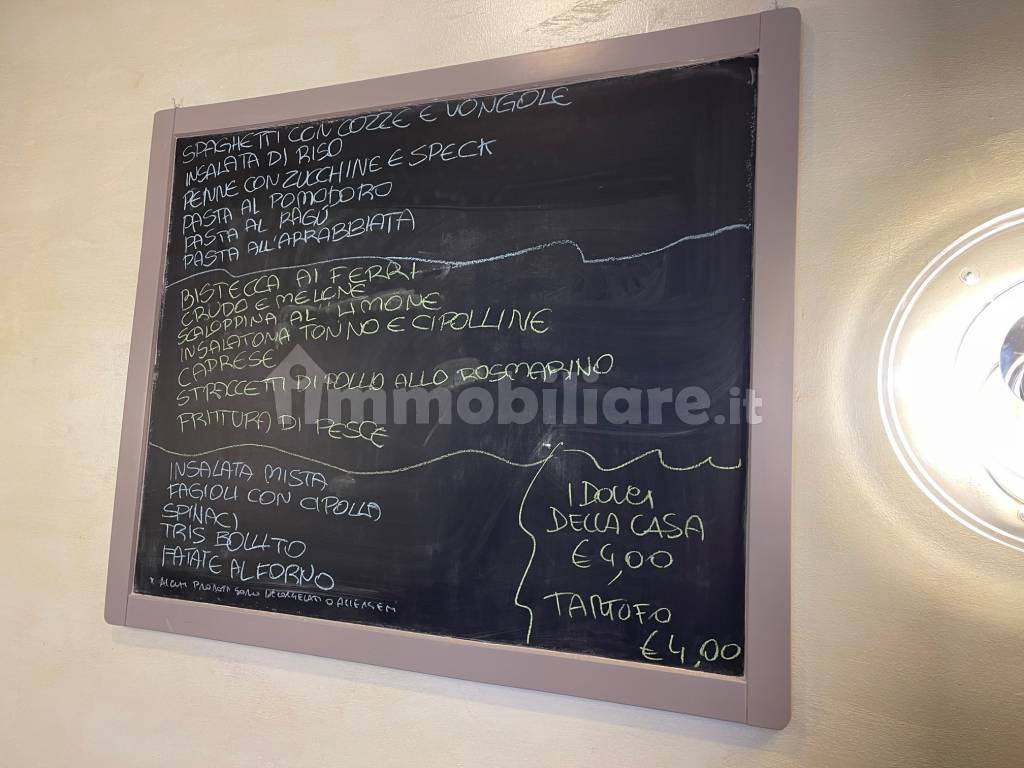 SPAGHETTI CON COZZE E VONGOLE
INSALATA DI RISO
PENNE CON ZUCCHINE E SPECK
PASTA AL POMODORO
PASTA AL RAGÚ
PASTA ALL'ARRABBIATA
BISTECCA AI FERRI
CRUDO E MELONE
SCALOPPINA AL LIMONE
INSALATONA TONNO E CIPOLLINE
CAPRESE
STRACCETTI DI POLLO ALLO ROSMARINO
FRITTURA DI PESCE
immobiliare.it
INSALATA MISTA
FAGIOLI CON CIPOLLA
SPINACI
TRIS BOLLITO
PATATE AL FORNO
* ALCUNI PRODOTTI SONO DECONGELATI O ALLERGENI
I DOLCI
DELLA CASA
€ 4,00
TARTUFO
€ 4,00